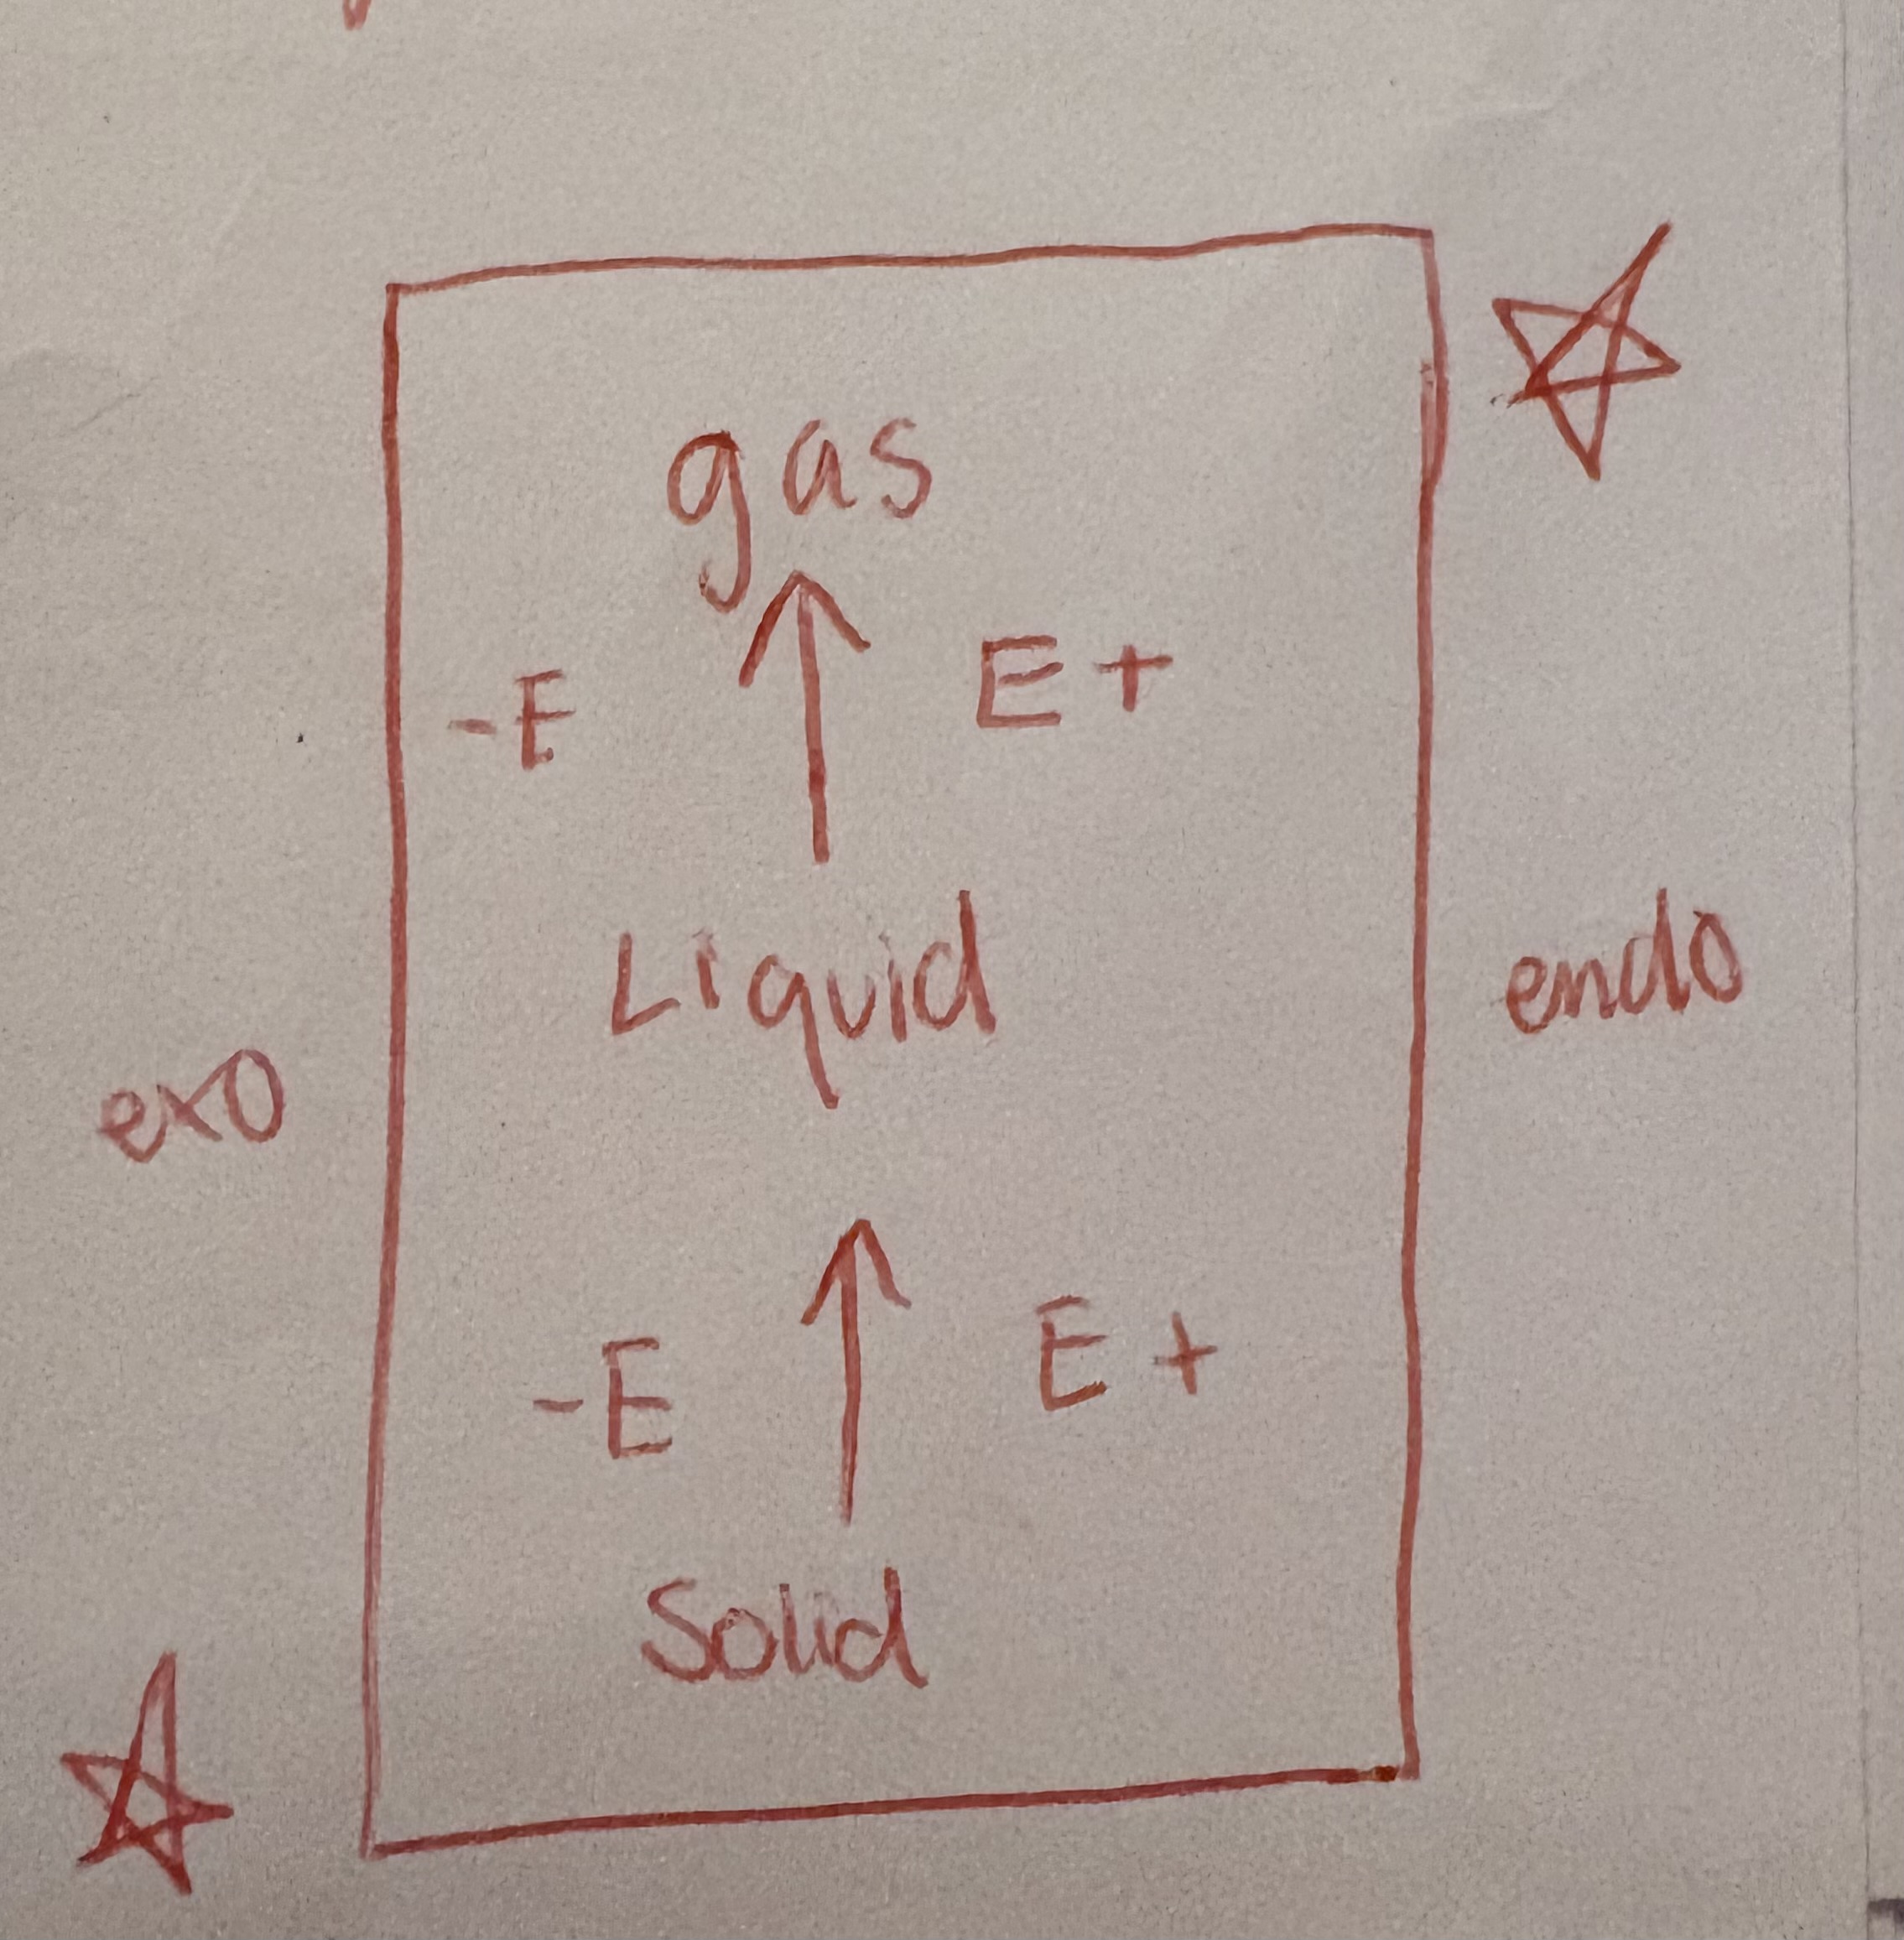 gas
-E E+
Liquid
endo
exo
-E E+
Solid